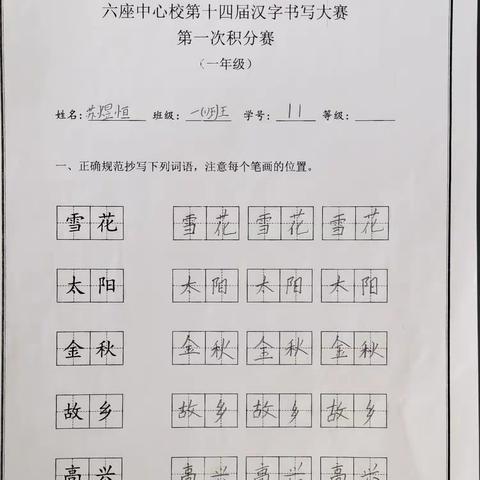 六座中心校第十四届汉字书写大赛
第一次积分赛
（一年级）
姓名:苏煜恒 班级:一(1)班 学号:11 等级:
一、正确规范抄写下列词语，注意每个笔画的位置。
雪花 雪花 雪花 雪花
太阳 太阳 太阳 太阳
金秋 金秋 金秋 金秋
故乡 故乡 故乡 故乡
高兴 高兴 高兴 高兴